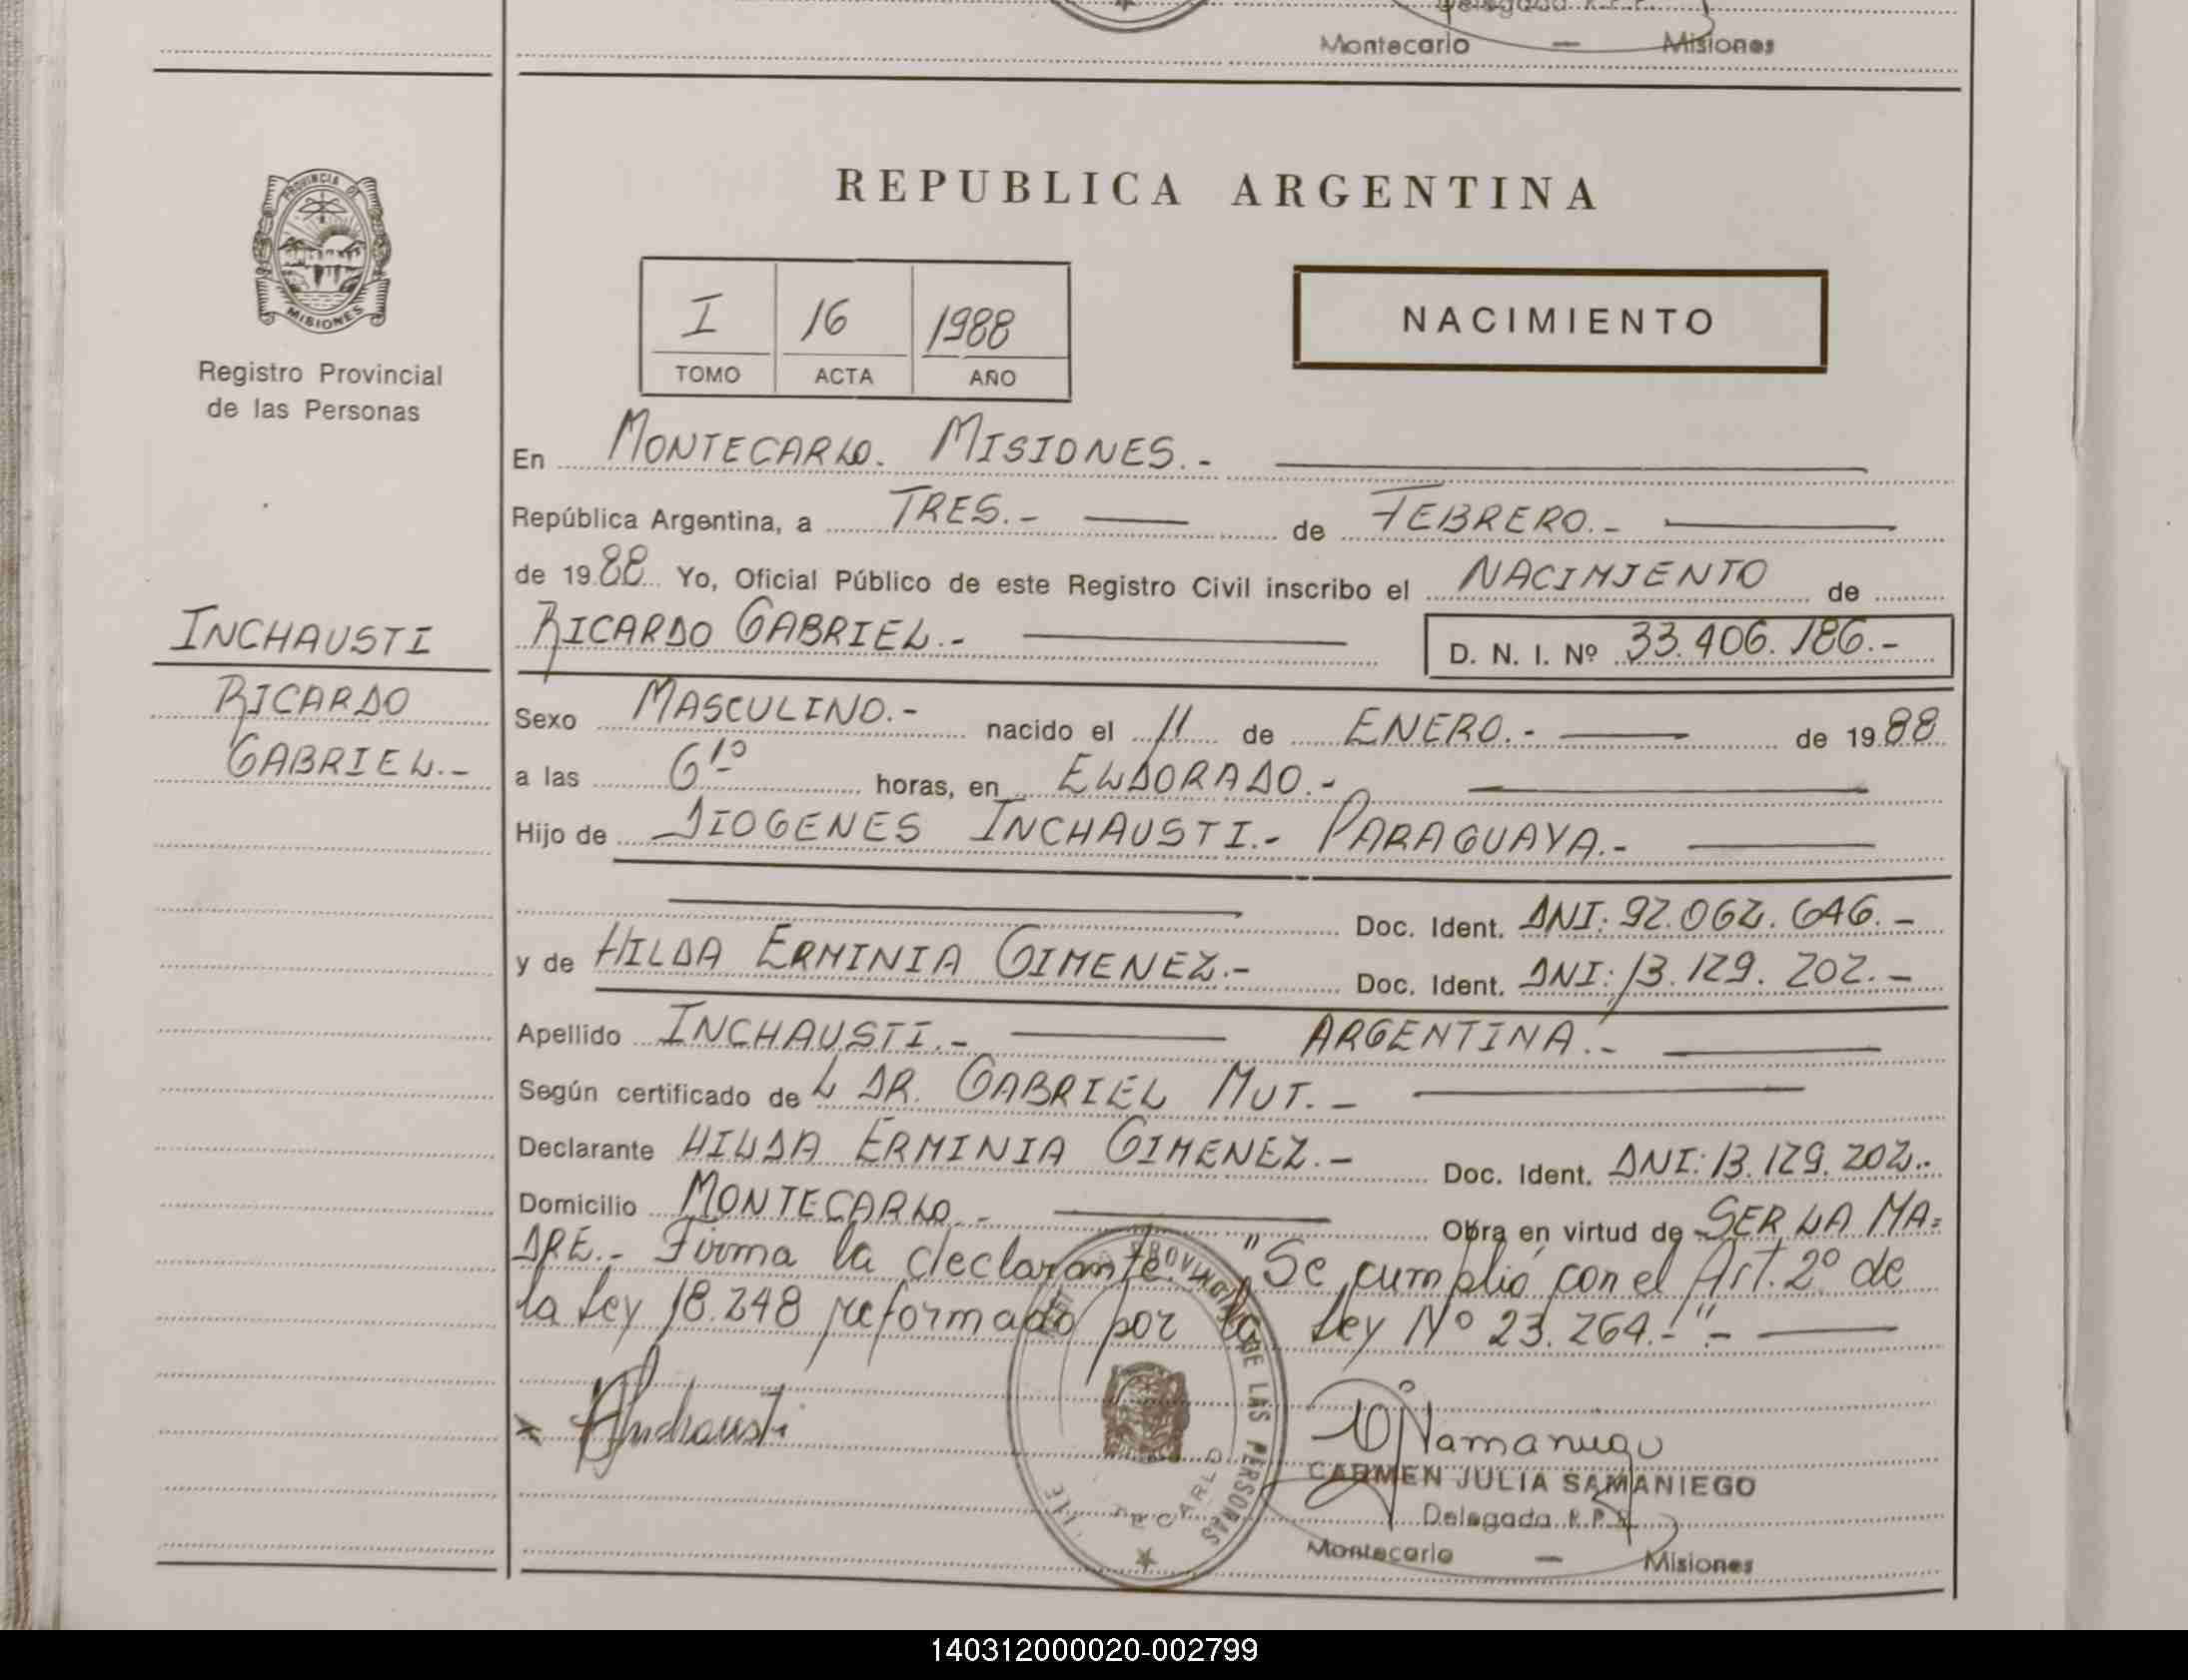 Delegada R.P.P.
Montecarlo — Misiones
PROVINCIA DE
MISIONES
Registro Provincial
de las Personas
REPUBLICA ARGENTINA
I 16 1988
TOMO ACTA AÑO
NACIMIENTO
En MONTECARLO. MISIONES.-
República Argentina, a TRES.- de FEBRERO.-
de 1988 Yo, Oficial Público de este Registro Civil inscribo el NACIMIENTO de
INCHAUSTI
RICARDO GABRIEL.- D. N. I. Nº 33.406.186.-
RICARDO
GABRIEL.-
Sexo MASCULINO.- nacido el 11 de ENERO.- de 1988
a las 6¹⁰ horas, en ELDORADO.-
Hijo de DIOGENES INCHAUSTI.- PARAGUAYA.-
Doc. Ident. DNI: 92.062.646.-
y de HILDA ERMINIA GIMENEZ.- Doc. Ident. DNI: 13.129.202.-
Apellido INCHAUSTI.- ARGENTINA.-
Según certificado de L DR. GABRIEL MUT.-
Declarante HILDA ERMINIA GIMENEZ.- Doc. Ident. DNI: 13.129.202.-
Domicilio MONTECARLO.- Obra en virtud de SER LA MA=
DRE.- Firma la declarante. "Se cumplió con el Art. 2º de
la Ley 18.248 reformado por la Ley Nº 23.264.-"-
x Inchausti
PROVINCIAL DE LAS PERSONAS
CARMEN JULIA SAMANIEGO
Delegada R.P.P.
Montecarlo — Misiones
140312000020-002799